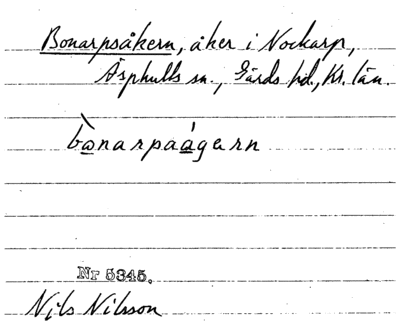 Bonarpsåkern, åker i Nockarp,
Äsphults sn., Gärds hd., Kr. län.
bònarpaágern
Nr 5345.
Nils Nilsson